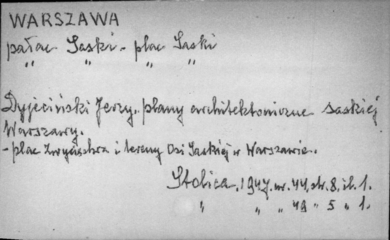 WARSZAWA
pałac Saski - plac Saski
" " " "
Dyjeciński Jerzy, plany architektoniczne saskiej
Warszawy.
- plac Zwycięstwa i tereny Osi Saskiej w Warszawie.
Stolica, 1947, nr. 44, str. 8, il. 1.
" " " 49 " 5 " 1.